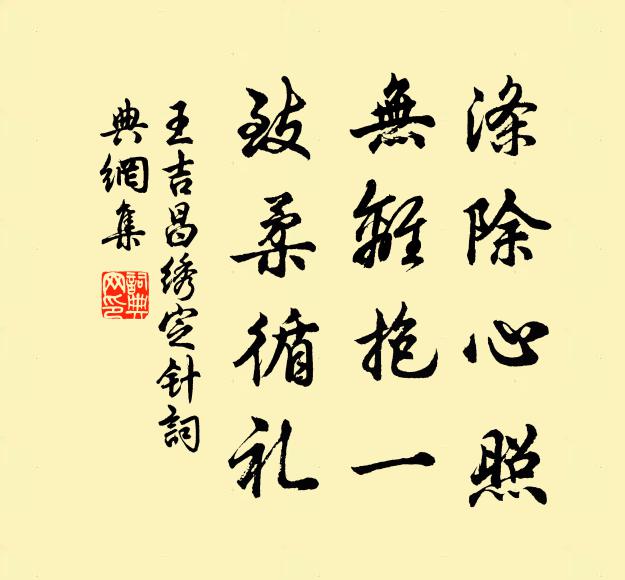 涤除心照
無離抱一
致柔循礼
王吉昌绣定针詞
典網集
詞典网印